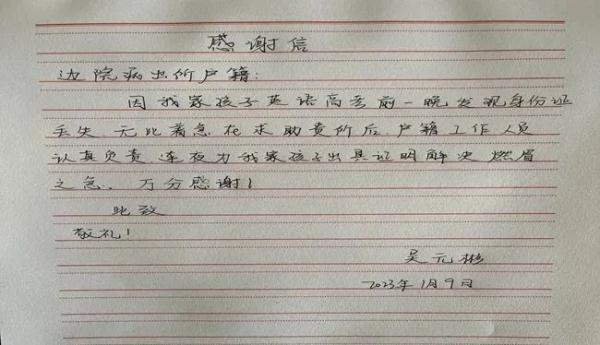 感谢信
边院派出所户籍:
因我家孩子英语高考前一晚发现身份证
丢失,无比着急在求助贵所后,户籍工作人员
认真负责,连夜为我家孩子出具证明解决燃眉
之急,万分感谢!
此致
敬礼!
吴元彬
2023年1月9日